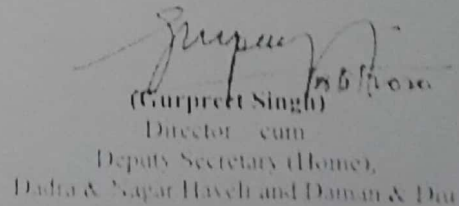 (Gurpreet Singh)
Director cum
Deputy Secretary (Home),
Dadra & Nagar Haveli and Daman & Diu